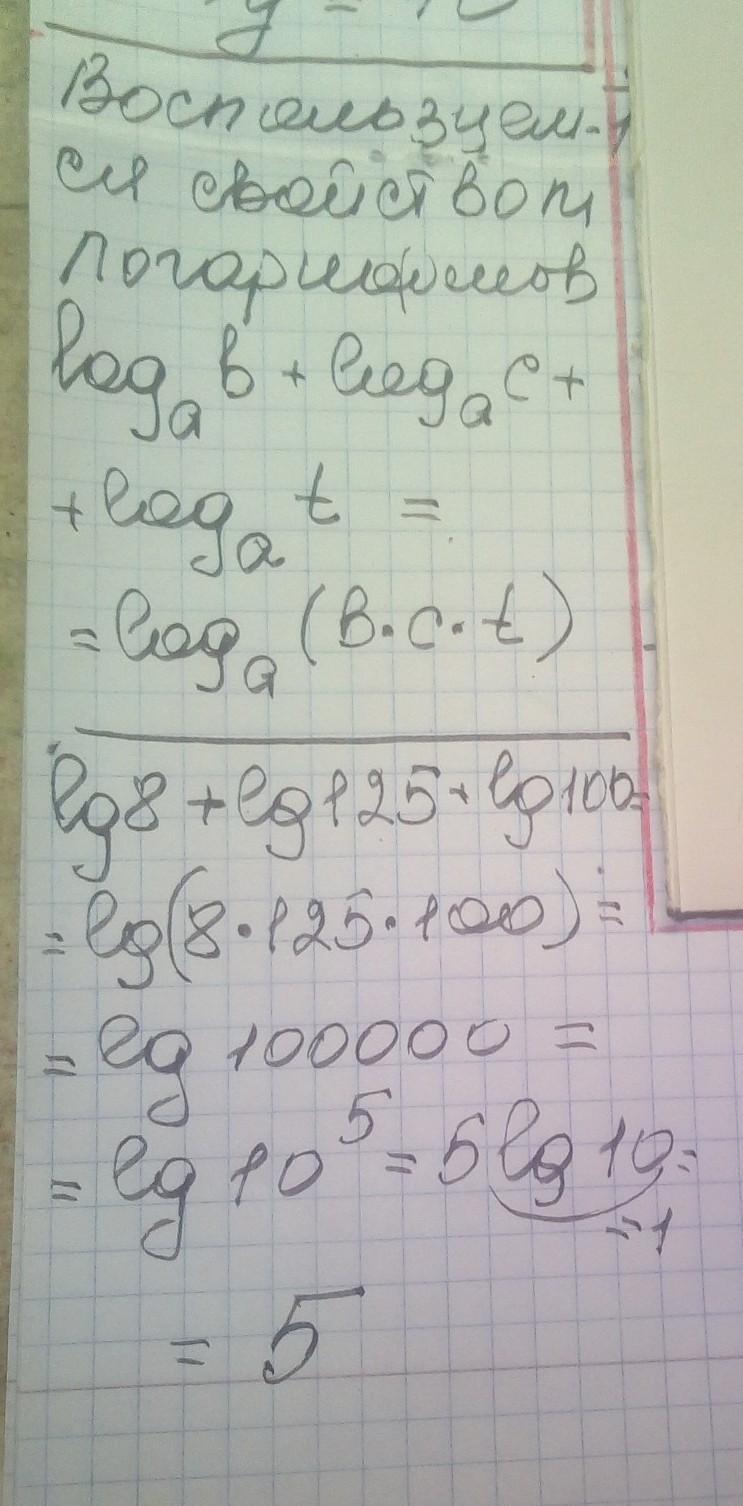 Воспользуем-
ся свойством
логарифмов
log_a b + log_a c +
+ log_a t =
= log_a (b · c · t)
lg8 + lg125 + lg100 =
= lg(8 · 125 · 100) =
= lg 100000 =
= lg 10⁵ = 5 lg 10 =
= 1
= 5